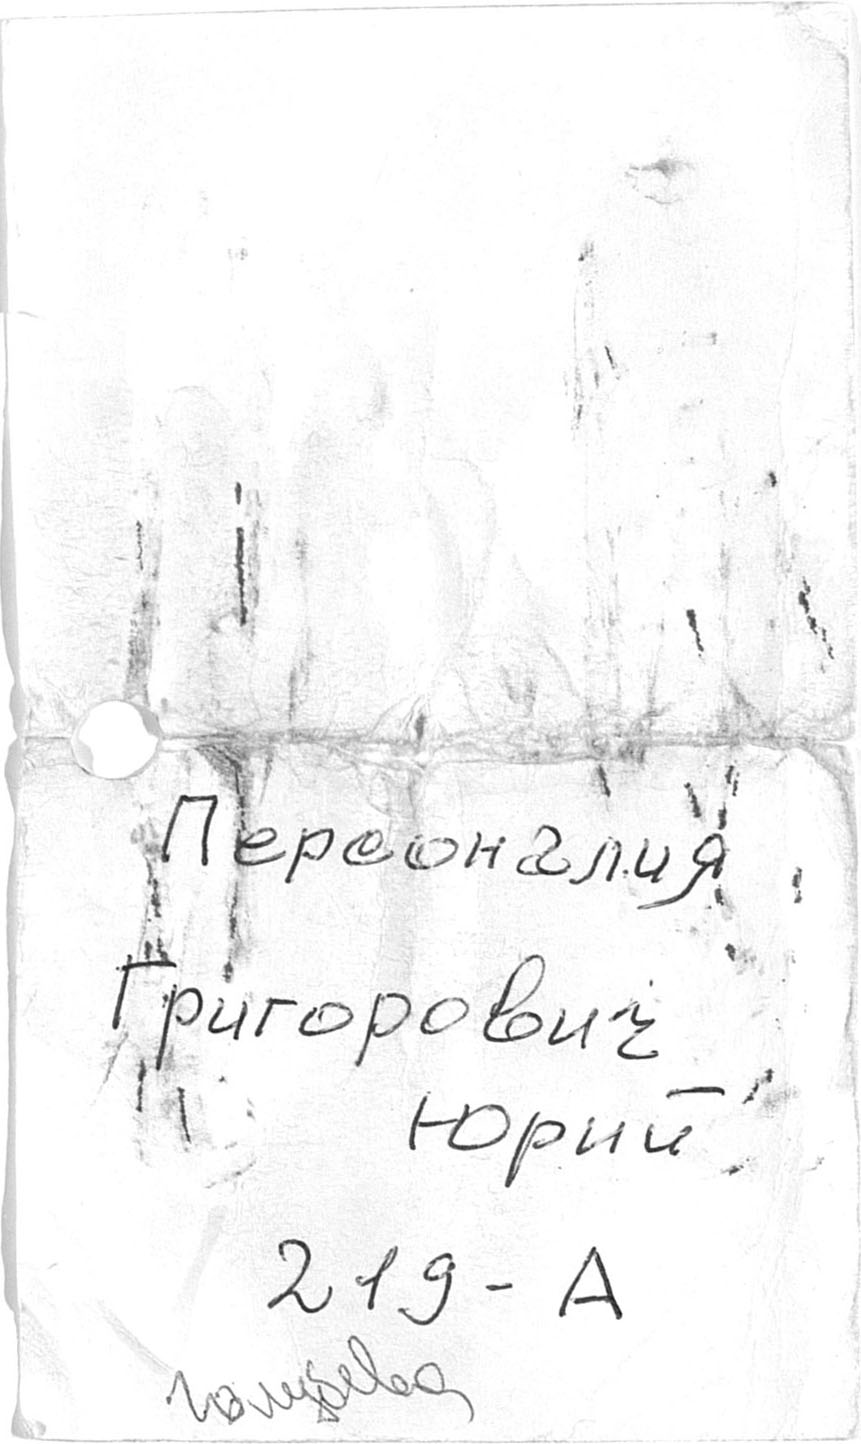 Персоналия
Григорович
Юрий
219-А